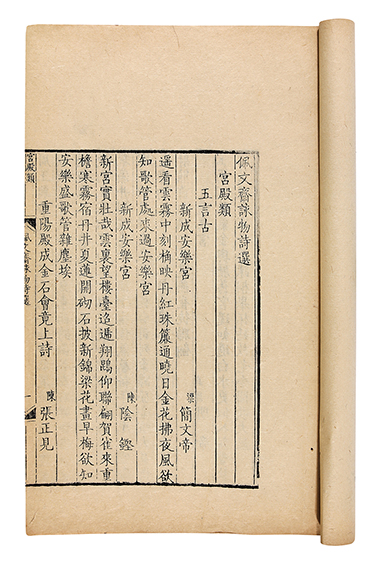 佩文齋詠物詩選
宮殿類
五言古
新成安樂宮 梁 簡文帝
遥看雲霧中刻桷映丹紅珠簾通曉日金花拂夜風欲
知歌管處來過安樂宮
新成安樂宮 陳 陰鏗
新宮實壯哉雲裏望樓臺迢遞翔鵾仰聯翩賀雀來重
檐寒霧宿丹井夏蓮開砌石披新錦梁花畫早梅欲知
安樂盛歌管雜塵埃
重陽殿成金石會竟上詩 陳 張正見
宮殿類